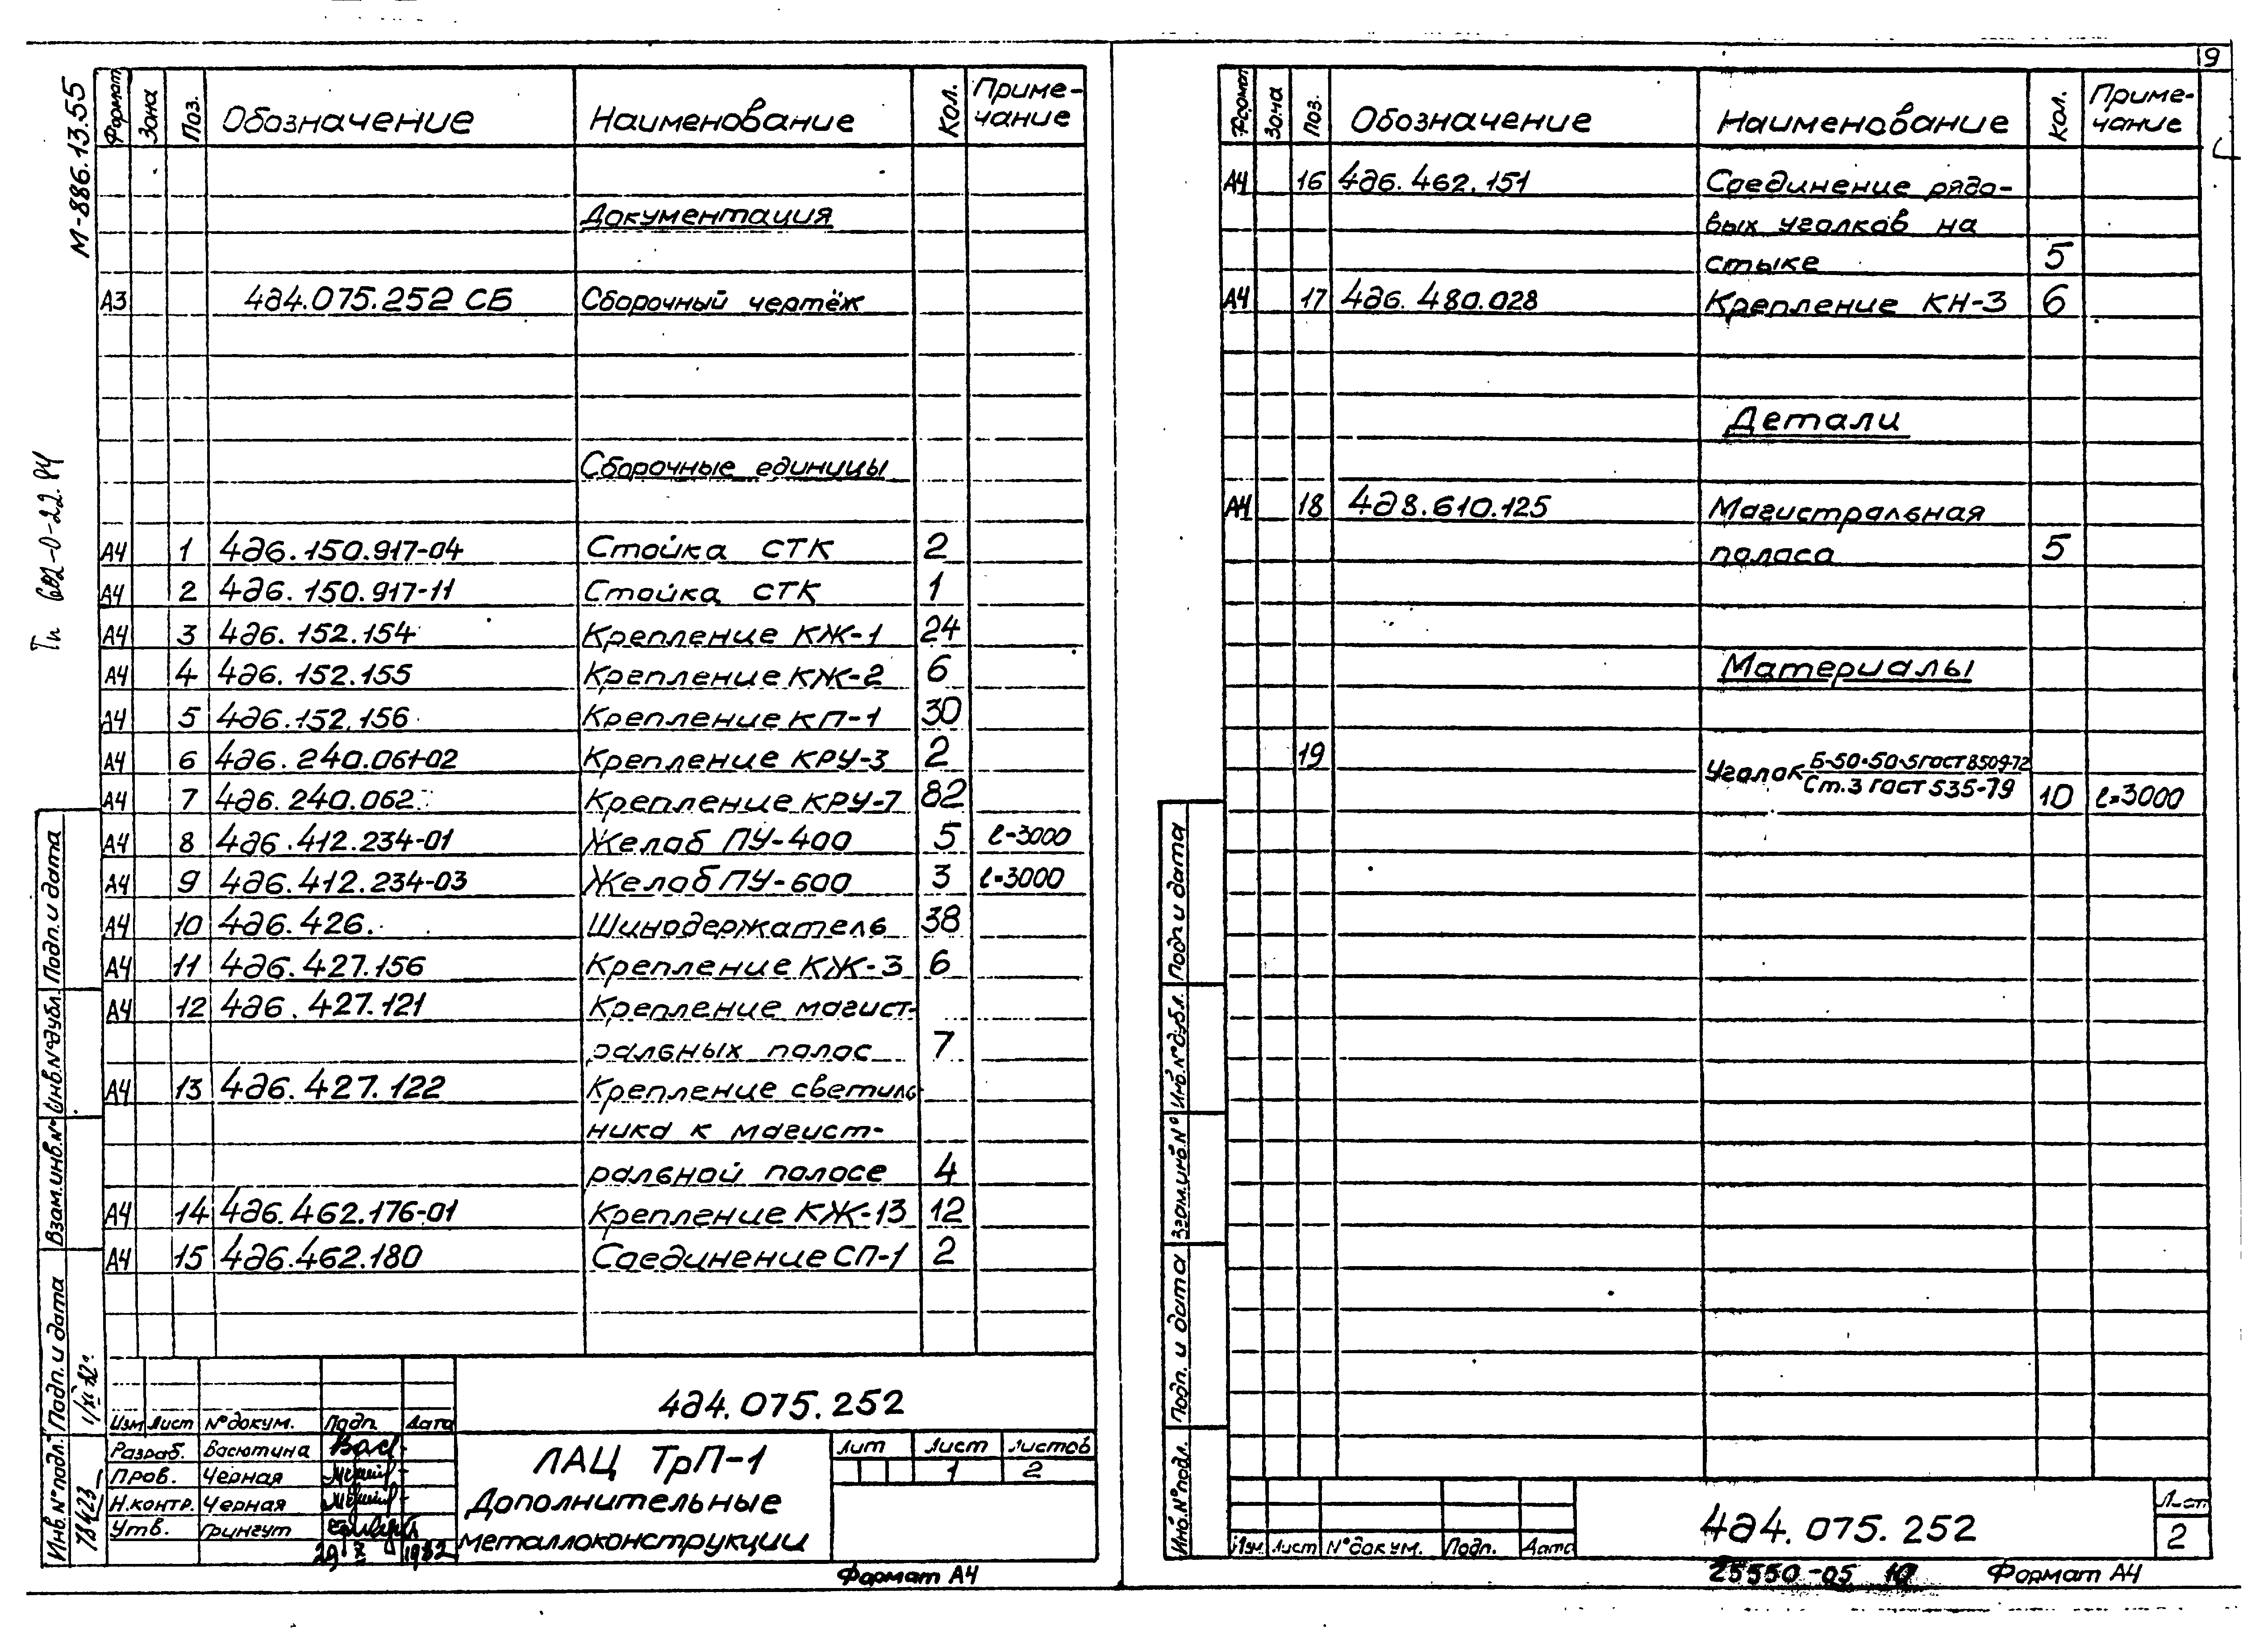 9
М-886.13.55
Тп 602-0-22.84
Формат Зона Поз. Обозначение Наименование Кол. Приме-
чание
Документация
А3 4д4.075.252 СБ Сборочный чертёж
Сборочные единицы
А4 1 4д6.150.917-04 Стойка СТК 2
А4 2 4д6.150.917-11 Стойка СТК 1
А4 3 4д6.152.154 Крепление КЖ-1 24
А4 4 4д6.152.155 Крепление КЖ-2 6
А4 5 4д6.152.156 Крепление КП-1 30
А4 6 4д6.240.061-02 Крепление КРУ-3 2
А4 7 4д6.240.062 Крепление КРУ-7 82
А4 8 4д6.412.234-01 Желоб ПУ-400 5 ℓ=3000
А4 9 4д6.412.234-03 Желоб ПУ-600 3 ℓ=3000
А4 10 4д6.426. Шинодержатель 38
А4 11 4д6.427.156 Крепление КЖ-3 6
А4 12 4д6.427.121 Крепление магист-
ральных полос 7
А4 13 4д6.427.122 Крепление светиль
ника к магист-
ральной полосе 4
А4 14 4д6.462.176-01 Крепление КЖ-13 12
А4 15 4д6.462.180 Соединение СП-1 2
Инв.№подл. Подп. и дата Взам.инв.№ Инв.№дубл. Подп. и дата
78423 1/XI 82г.
4д4.075.252
Изм Лист №докум. Подп. Дата
Разраб. Васютина Вас
Пров. Черная
Н.контр. Черная
Утв. Грингут
29 X 1982
ЛАЦ ТрП-1
Дополнительные
металлоконструкции
Лит Лист Листов
1 2
Формат А4
Формат Зона Поз. Обозначение Наименование Кол. Приме-
чание
А4 16 4д6.462.151 Соединение рядо-
вых уголков на
стыке 5
А4 17 4д6.480.028 Крепление КН-3 6
Детали
А4 18 4д8.610.125 Магистральная
полоса 5
Материалы
19 Уголок Б-50·50·5 ГОСТ 8509-72
Ст.3 ГОСТ 535-79 10 ℓ=3000
Инв.№подл. Подп. и дата Взам.инв.№ Инв.№дубл. Подп и дата
Изм Лист №докум. Подп. Дата
4д4.075.252
Лист
2
25550-05 10 Формат А4